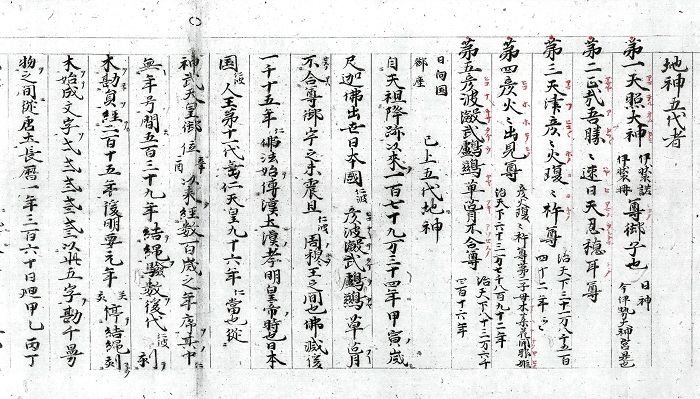 地神五代者
第一天照大神 伊弉諾 伊弉冊 尊御子也 日神 今伊勢大神宮是也
第二正哉吾勝〻速日天忍穂耳尊
第三天津彦〻火瓊〻杵尊 治天下三十一万八千五百四十二年
第四彦火〻出見尊 彦火瓊〻杵尊第二子母木花開耶姫 治天下六十三万七千八百九十二年
第五彦波瀲武鸕鷀草葺不合尊 治天下八十三万六千 百十六年
日向国 御座 已上五代地神
自天祖降跡以来一百七十九万三千四年甲寅歳
尺迦佛出世日本國仁波彦波瀲武鸕鷀草葺
不合尊御宇之末震旦仁波周穆王之間也佛滅後
一千十五年仁佛法始傳漢土漢孝明皇帝時也日本
国仁波人王第十一代垂仁天皇九十六年仁當也従
神武天皇御位以来経数百歳之年序其中
無年号間五百三十九年結縄験数後代仁波刻
木勘負経二百十五年後明尊元年停結縄刻
木始成文字 以此五字勘千万
物之間従唐土長暦一年三百六十日廻甲乙丙丁